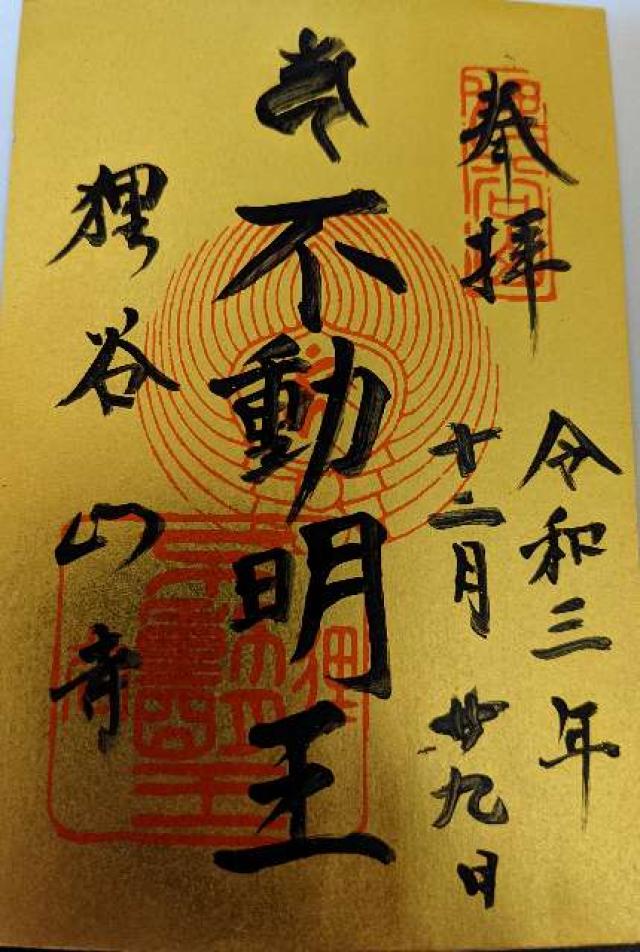 奉拝
令和三年
十二月廿九日
不動明王
狸谷山寺